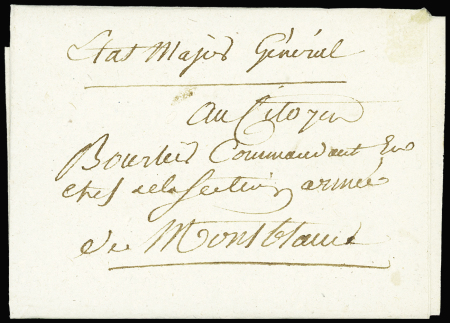 Etat Major Général
au Citoyen
Commandant En
chef de la Section armée
de Montblanc